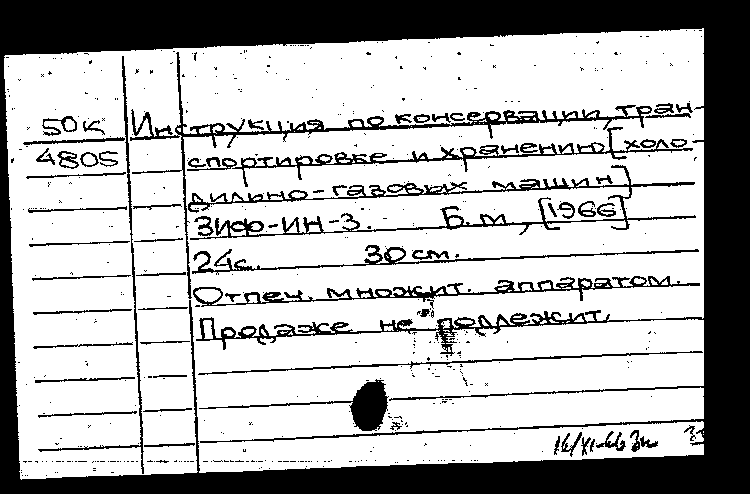 50К Инструкция по консервации, тран-
4805 спортировке и хранению [холо-
дильно-газовых машин]
ЗИФ-ИН-3. Б.м., [1966]
24с. 30см.
Отпеч. множит. аппаратом.
Продаже не подлежит.
16/XI-66